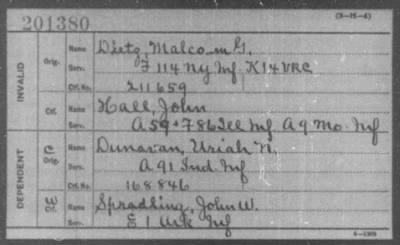 201380 (3-15-4)
INVALID Orig. Name Dietz, Malcom G.
Serv. F 114 NY Inf. K 14 VRC
Ctf. No. 211659
Ctf. Name Hall, John
Serv. A 59 + 78 Ill Inf A 9 Mo. Inf
DEPENDENT C Orig. Name Dunavan, Uriah N.
Serv. A 91 Ind. Inf
Ctf. No. 168846
W Ctf. Name Spradling, John W.
Serv. E 1 Ark Inf
6-1308